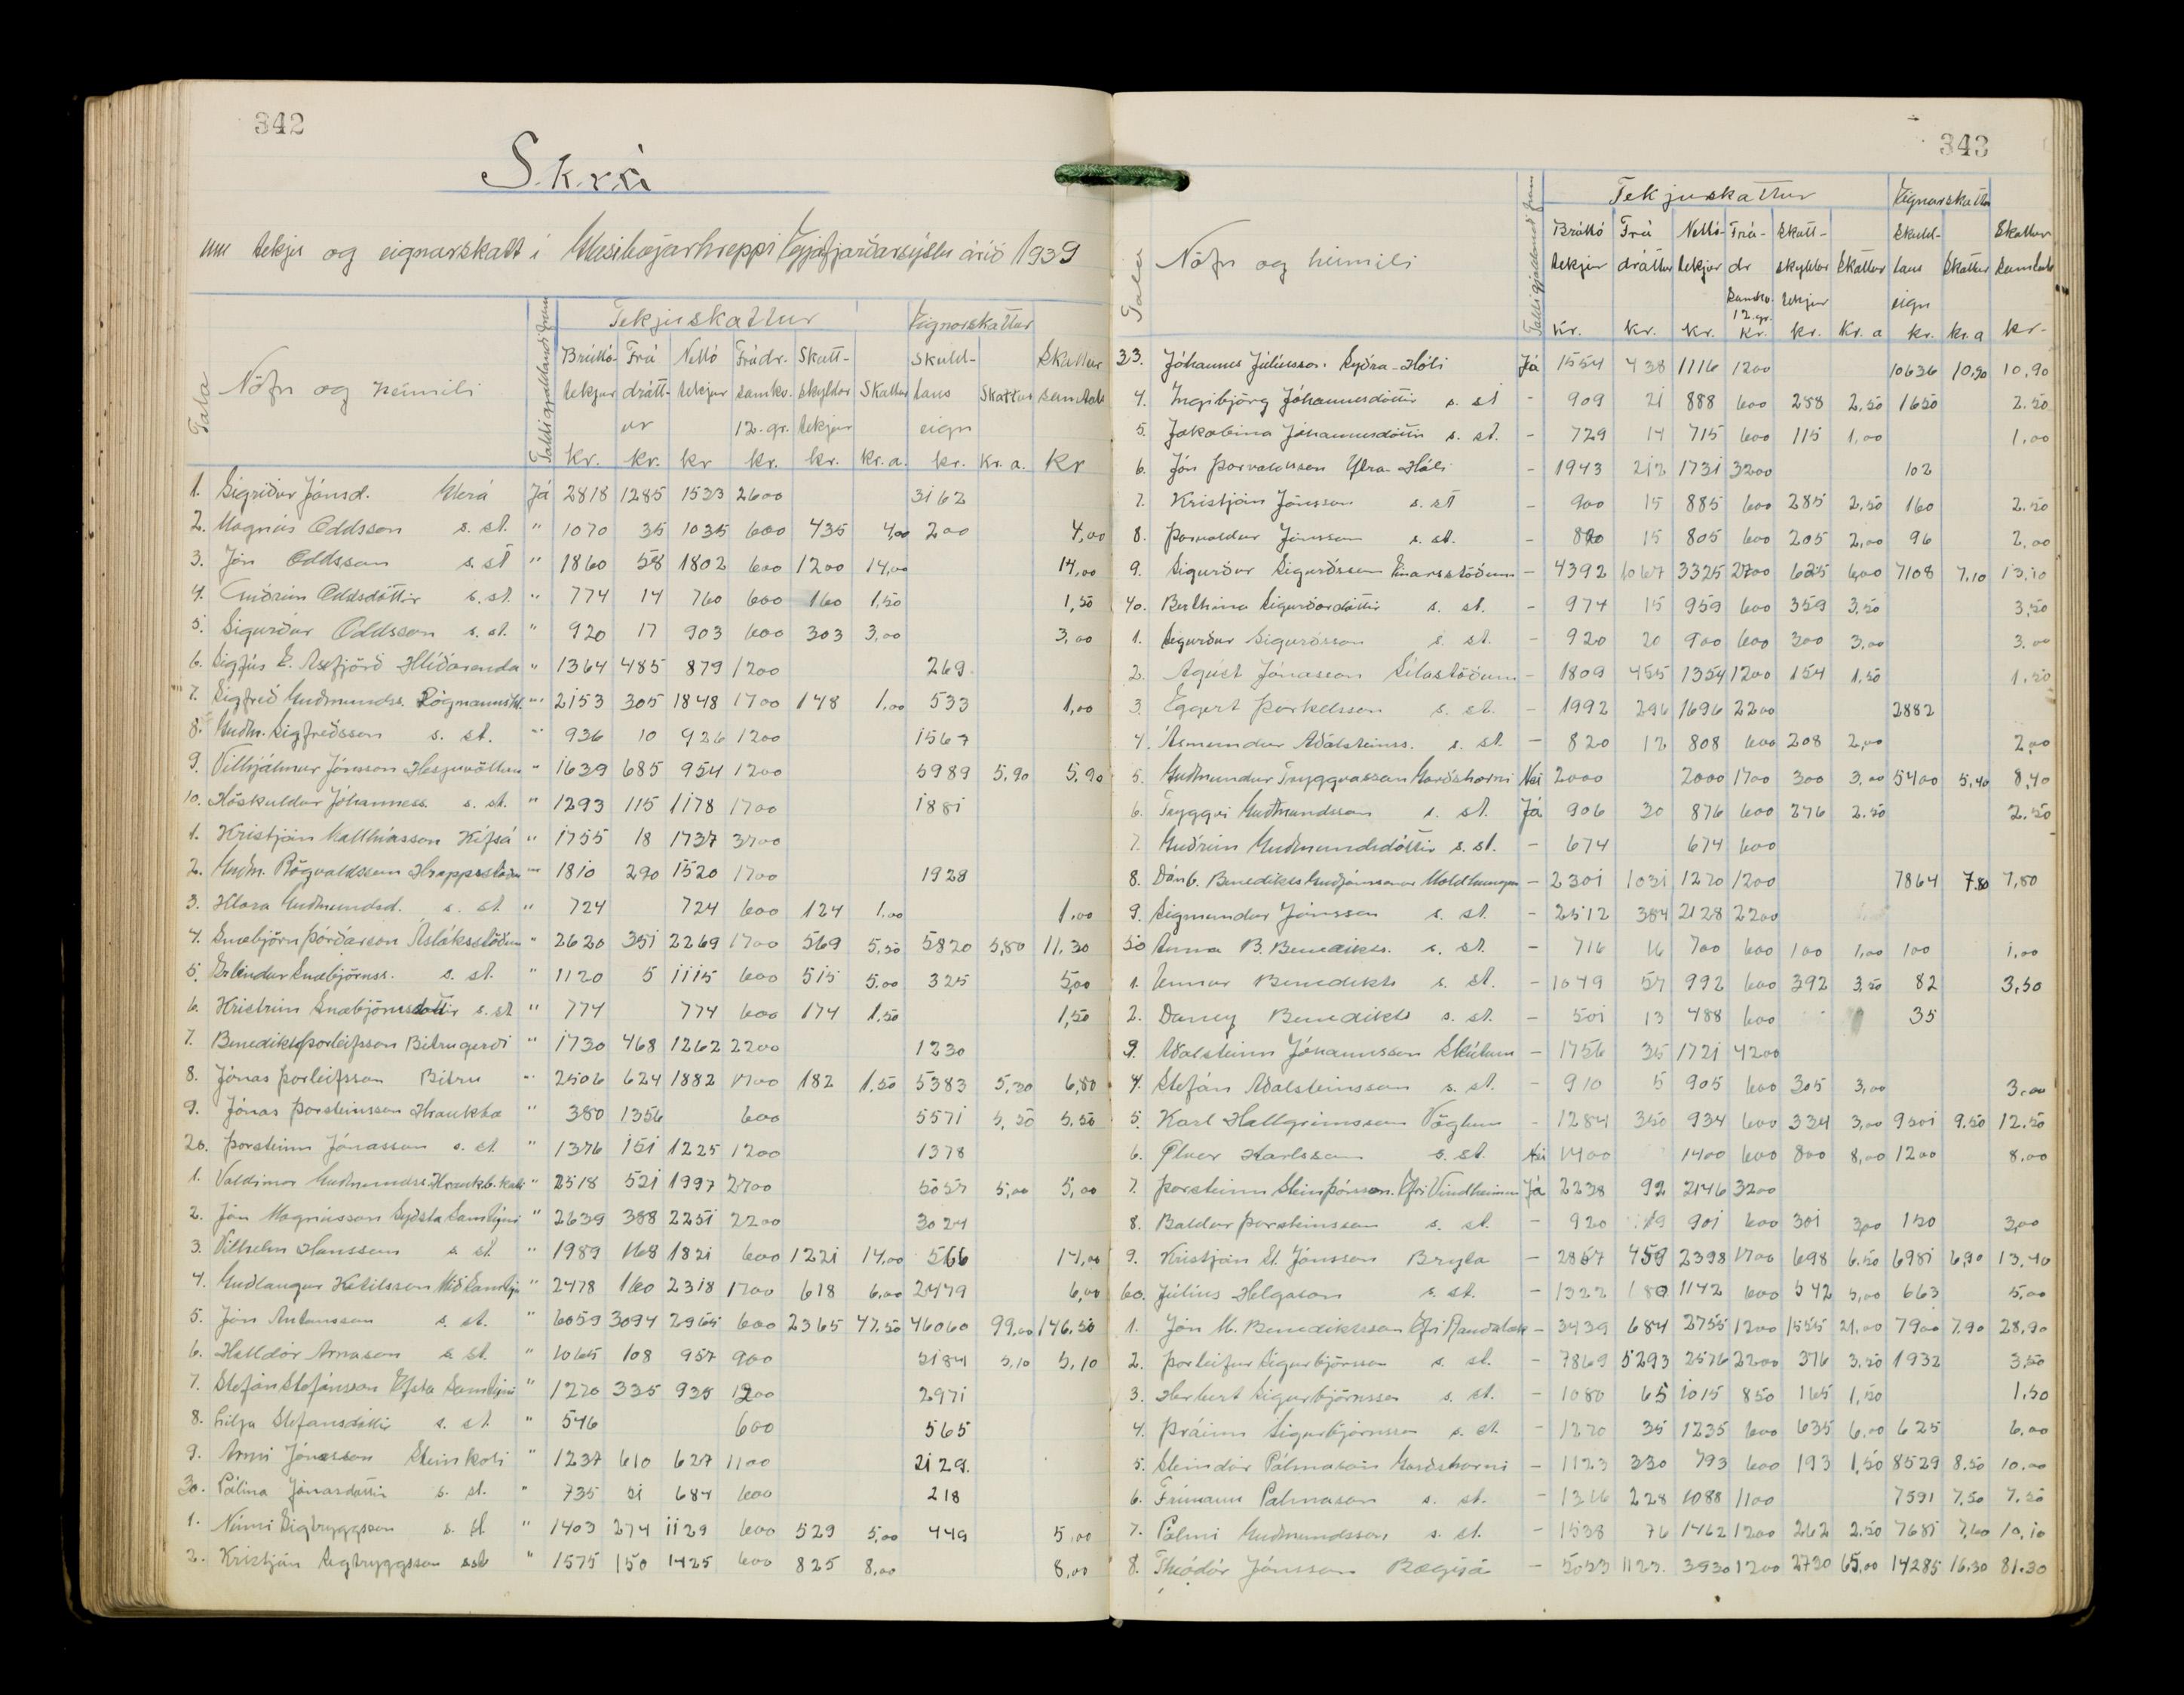 342
Skrá
um tekju og eignarskatt í Glæsibæjarhreppi Eyjafjarðarsýslu árið 1939
Tala Nöfn og heimili Taldi gjaldandi fram Tekjuskattur Eignarskattur
Brúttó- Frá Nettó Frádr. Skatt- Skuld- Skattur
tekjur drátt- tekjur samkv. skyldar Skattur laus Skattur samtals
ur 12. gr. tekjur eign
kr. kr. kr kr. kr. kr. a. kr. kr. a. kr
1. Sigríður Jónsd. Glerá Já 2818 1285 1533 2600 3162
2. Magnús Oddsson s. st. " 1070 35 1035 600 435 4,00 200 4,00
3. Jón Oddsson s. st " 1860 58 1802 600 1200 14,00 14,00
4. Guðrún Oddsdóttir s. st. " 774 14 760 600 160 1,50 1,50
5. Sigurður Oddsson s. st. " 920 17 903 600 303 3,00 3,00
6. Sigfús E. Axfjörð Hlíðarenda " 1364 485 879 1200 269
7. Sigfreð Guðmundss. Lögmannshl. " 2153 305 1848 1700 148 1,00 533 1,00
8. Guðm. Sigfreðsson s. st. " 936 10 926 1200 1567
9. Vilhjálmur Jónsson Hesjuvöllum " 1639 685 954 1200 5989 5,90 5,90
10. Höskuldur Jóhanness. s. st. " 1293 115 1178 1700 1881
1. Kristján Matthíasson Kífsá " 1755 18 1737 3700
2. Guðm. Rögnvaldsson Hrappsstöðum " 1810 290 1520 1700 1928
3. Klara Guðmundsd. s. st " 724 724 600 124 1,00 1,00
4. Snæbjörn Þórðarson Ásláksstöðum " 2620 351 2269 1700 569 5,50 5820 5,80 11,30
5. Erlendur Snæbjörnss. s. st. " 1120 5 1115 600 515 5,00 325 5,00
6. Kristrún Snæbjörnsdóttir s. st " 774 774 600 174 1,50 1,50
7. Benedikt Þorleifsson Bitrugerði " 1730 468 1262 2200 1230
8. Jónas Þorleifsson Bitru " 2506 624 1882 1700 182 1,50 5383 5,30 6,80
9. Jónas Þorsteinsson Kraukbæ " 380 1356 600 5571 5,50 5,50
20. Þorsteinn Jónasson s. st. " 1376 151 1225 1200 1378
1. Valdimar Guðmundss. Kraukb.koti " 2518 521 1997 2700 5057 5,00 5,00
2. Jón Magnússon Syðsta Samtýni " 2639 388 2251 2200 3024
3. Vilhelm Hansson s. st. " 1989 168 1821 600 1221 14,00 566 14,00
4. Guðlaugur Ketilsson Mið Samtýni " 2478 160 2318 1700 618 6,00 2479 6,00
5. Jón Antonsson s. st. " 6059 3094 2965 600 2365 47,50 46060 99,00 146,50
6. Halldór Árnason s. st. " 1065 108 957 900 5184 5,10 5,10
7. Stefán Stefánsson Efsta Samtýni " 1270 335 935 1200 2971
8. Lilja Stefansdóttir s. st. " 546 600 565
9. Árni Jónasson Steinkoti " 1237 610 627 1100 2129.
30. Pálína Jónasdóttir s. st. " 735 51 684 600 218
1. Númi Sigtryggsson s. st. " 1403 274 1129 600 529 5,00 449 5,00
2. Kristján Sigtryggsson s st " 1575 150 1425 600 825 8,00 8,00
343
Tala Nöfn og heimili Taldi gjaldandi fram Tekjuskattur Eignarskattur
Brúttó Frá Nettó- Frá- Skatt- Skuld- Skattur
tekjur dráttur tekjur dr skyldar Skattur laus Skattur samtals
samkv. tekjur eign
12. gr.
kr. kr. kr. kr. kr. kr. a kr. kr. a kr.
33. Jóhannes Júlíusson Syðra-Hóli Já 1554 438 1116 1200 10636 10,90 10,90
4. Ingibjörg Jóhannesdóttir s. st - 909 21 888 600 288 2,50 1650 2.50
5. Jakobína Jóhannesdóttir s. st. - 729 14 715 600 115 1,00 1,00
6. Jón Þorvaldsson Ytra-Hóli - 1943 212 1731 3200 102
7. Kristján Jónsson s. st - 900 15 885 600 285 2,50 160 2.50
8. Þorvaldur Jónsson s. st. - 820 15 805 600 205 2,00 96 2,00
9. Sigurður Sigurðsson Einarsstöðum - 4392 1067 3325 2700 625 6,00 7108 7.10 13.10
40. Berthina Sigurðardóttir s. st. - 974 15 959 600 359 3,50 3,50
1. Sigurður Sigurðsson s. st. - 920 20 900 600 300 3,00 3.00
2. Agúst Jónasson Sílastöðum - 1809 455 1354 1200 154 1,50 1.50
3. Eggert Þorkelsson s. st. - 1992 296 1696 2200 2882
4. Ásmundur Aðalsteinss. s. st. - 820 12 808 600 208 2,00 2,00
5. Guðmundur Tryggvasson Garðshorni Nei 2000 2000 1700 300 3,00 5400 5,40 8,40
6. Tryggvi Guðmundsson s. st. Já 906 30 876 600 276 2.50 2.50
7. Guðrún Guðmundsdóttir s. st. - 674 674 600
8. Dánb. Benedikts Guðjónssonar Moldhaugum - 2301 1031 1270 1200 7864 7.80 7,80
9. Sigmundur Jónsson s. st. - 2512 384 2128 2200
50 Anna B. Benedikts. s. st. - 716 16 700 600 100 1,00 100 1,00
1. Unnur Benedikts s. st. - 1049 57 992 600 392 3,50 82 3,50
2. Daney Benedikts s. st. - 501 13 488 600 35
3. Aðalsteinn Jóhannsson Skútum - 1756 35 1721 4200
4. Stefán Aðalsteinsson s. st. - 910 5 905 600 305 3,00 3.00
5. Karl Hallgrímsson Vöglum - 1284 350 934 600 334 3,00 9501 9.50 12.50
6. Ólver Karlsson s. st. Nei 1400 1400 600 800 8,00 1200 8.00
7. Þorsteinn Steinþórsson. Efri Vindheimum Já 2238 92 2146 3200
8. Baldur Þorsteinsson s. st. - 920 19 901 600 301 3,00 150 3,00
9. Kristján St. Jónsson Bryta - 2857 459 2398 1700 698 6.50 6981 6,90 13,40
60. Júlíus Helgason s. st. - 1322 180 1142 600 542 5,00 663 5,00
1. Jón M. Benediktsson Efri Rauðalæk - 3439 684 2755 1200 1555 21,00 7900 7.90 28,90
2. Þorleifur Sigurbjörnsson s. st. - 7869 5293 2576 2200 376 3.50 1932 3,50
3. Herbert Sigurbjörnsson s. st. - 1080 65 1015 850 165 1,50 1.50
4. Þráinn Sigurbjörnsson s. st. - 1270 35 1235 600 635 6,00 625 6,00
5. Steindór Pálmason Garðshorni - 1123 330 793 600 193 1,50 8529 8.50 10.00
6. Frímann Pálmason s. st. - 1316 228 1088 1100 7591 7,50 7.50
7. Pálmi Guðmundsson s. st. - 1538 76 1462 1200 262 2.50 7681 7,60 10,10
8. Theódór Jónsson Bægisá - 5053 1123. 3930 1200 2730 65,00 14285 16.30 81.30